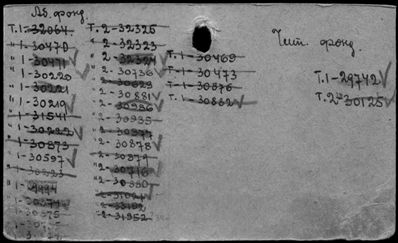 Аб. фонд.
Т.1-32064
" 1-30470
" 1-30471
" 1-30220
" 1-30221
" 1-30219
" 1-31541
" 1-30222
" 1-30873
" 1-30597
" 1-30223
Т. 2-32325
" 2-32323
" 2-32324
" 2-30736
" 2-30881
" 2-30936
" 2-30935
" 2-30877
" 2-30878
" 2-30879
" 2-30716
" 2-30880
2-31952
Т.1-30469
Т.1-30473
Т.1-30876
Т.1-30882
Чит. фонд.
Т.1-29742
Т.2-30125